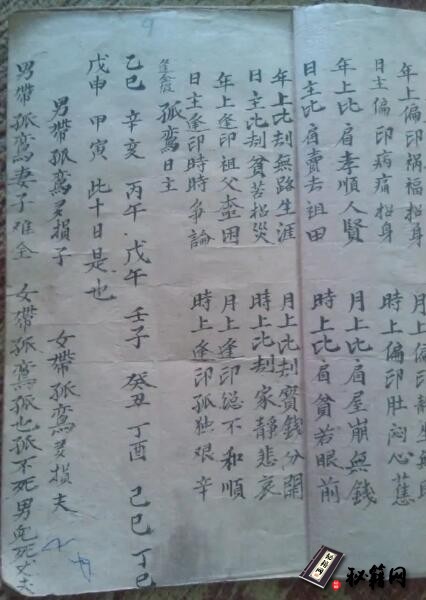 年上偏印禍福招身
日主偏印病痛招身 時上偏印肚悶心蕉
年上比肩孝順人賢 月上比肩屋崩無錢
日主比肩賣去祖田 時上比肩貧若眼前
年上比刦無路生涯 月上比刦寳錢分開
日主比刦貧苦招災 時上比刦家靜悲哀
年上逢印祖父盡困 月上逢印總不和順
日主逢印時時爭論 時上逢印孤独艰辛
孤鸞日主
乙巳 辛亥 丙午 戊午 壬子 癸丑 丁酉 己巳 丁巳
戊申 甲寅 此十日是也
男帶孤鸞多損子 女帶孤鸞多損夫
男帶孤鸞妻子难全 女帶孤鸞孤也孤不死男
秘籍网